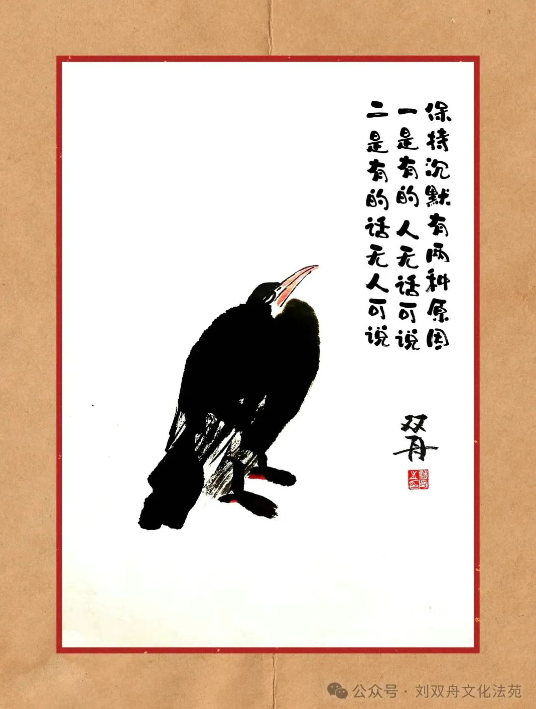 保持沉默有两种原因
一是有的人无话可说
二是有的话无人可说
双舟
公众号 · 刘双舟文化法苑